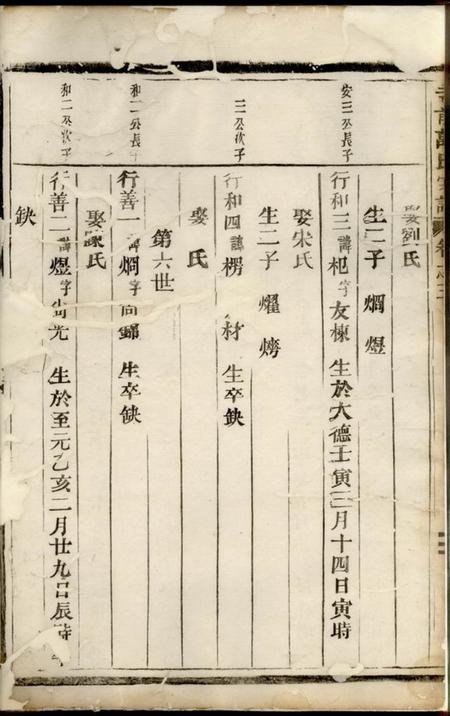 娶劉氏
生二子 烱 煜
安三公長子
行和三諱杞字友棟 生於大德壬寅三月十四日寅時
娶宋氏
生二子 燿 㷭
三公次子
行和四諱楞 材 生卒缺
娶 氏
第六世
和二公長子
行善一諱烱字尚錦 生卒缺
娶陳氏
和二公次子
行善二諱煜字尚光 生於至元乙亥二月廿九日辰時
缺